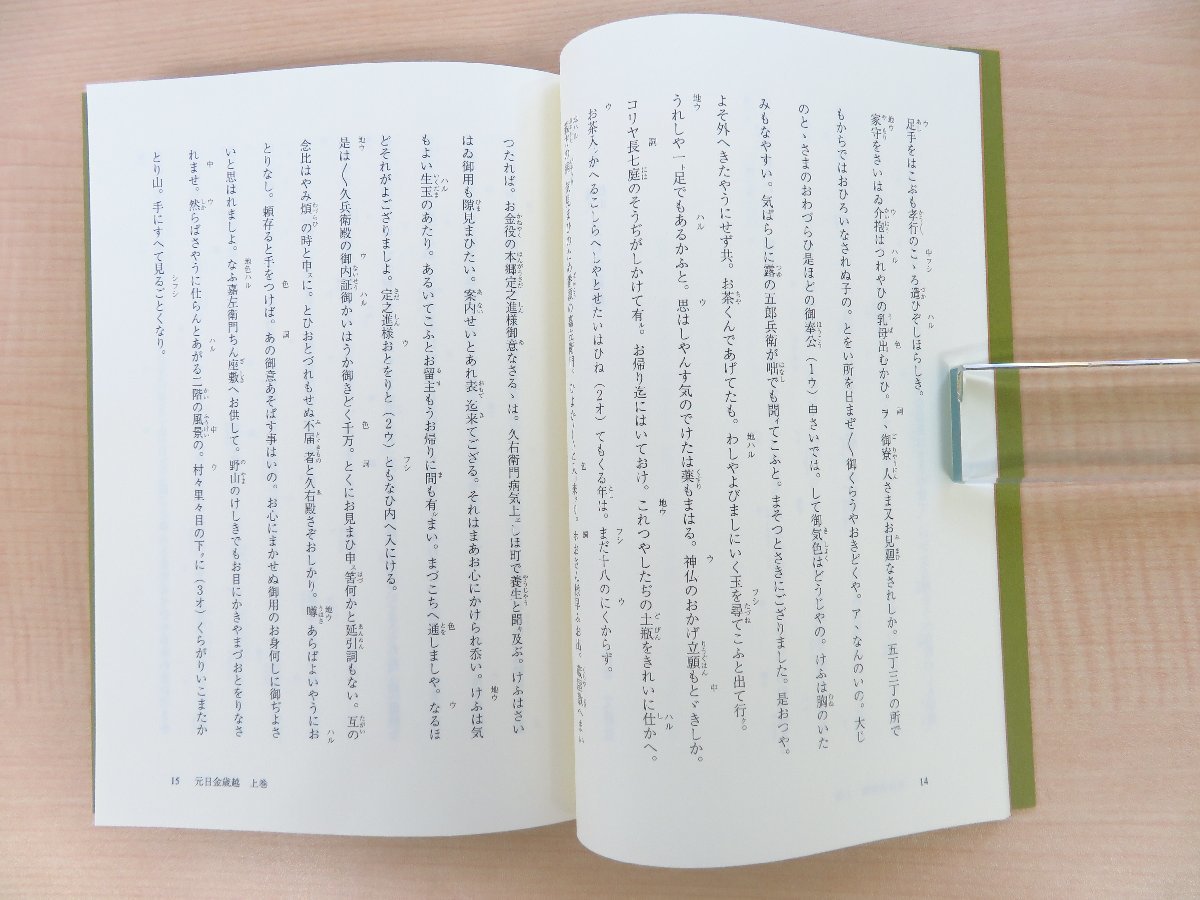 足手をはこぶも孝行のこゝろ遣ひぞしほらしき。
家守をさいはゐ介抱はつれやひの乳母出むかひ。ヲヽ御寮人さま又お見廻なされしか。五丁三丁の所で
もかちではおひろいなされぬ子の。とをい所を日まぜ〳〵御くらうやおきどくや。アヽなんのいの。大じ
のとゝさまのおわづらひ是ほどの御奉公（1ウ）由さいでは。して御気色はどうじやの。けふは胸のいた
みもなやすい。気ばらしに露の五郎兵衛が咄でも聞ィてこふと。まそつとさきにござりました。是おつや。
よそ外へきたやうにせず共。お茶くんであげてたも。わしやよびましにいく玉を尋てこふと出て行ク。
うれしや一ト足でもあるかふと。思はしやんす気のでけたは薬もまはる。神仏のおかげ立願もとゞきしか。
コリヤ長七庭のそうぢがしかけて有ル。お帰り迄にはいておけ。これつやしたぢの土瓶をきれいに仕かへ。
お茶入かへるこしらへしやとせたいはひね（2オ）てもくる年は。まだ十八のにくからず。
14
つたれば。お金役の本郷定之進様御意なさるゝは。久右衛門病気上ミしほ町で養生と聞キ及ぶ。けふはさい
はゐ御用も隙見まひたい。案内せいとあれ表迄来てござる。それはまあお心にかけられ忝い。けふは気
もよい生玉のあたり。あるいてこふとお留主もうお帰りに間も有ルまい。まづこちへ通しましや。なるほ
どそれがよござりましよ。定之進様おとをりと（2ウ）ともなひ内へ入にける。
是は〳〵久兵衛殿の御内証御かいはうか御きどく千万。とくにお見まひ申ス筈何かと延引詞もない。互の
念比はやみ煩の時と申スに。とひおとづれもせぬ不届者と久右殿さぞおしかり。噂あらばよいやうにお
とりなし。頼存ると手をつけば。あの御意あそばす事はいの。お心にまかせぬ御用のお身何しに御ぢよさ
いと思はれましよ。なふ嘉左衛門ちん座敷へお供して。野山のけしきでもお目にかきやまづおとをりなさ
れませ。然らばさやうに仕らんとあがる二階の風景の。村々里々目の下タに（3オ）くらがりいこまたか
とり山。手にすへて見るごとくなり。
15 元日金歳越 上巻